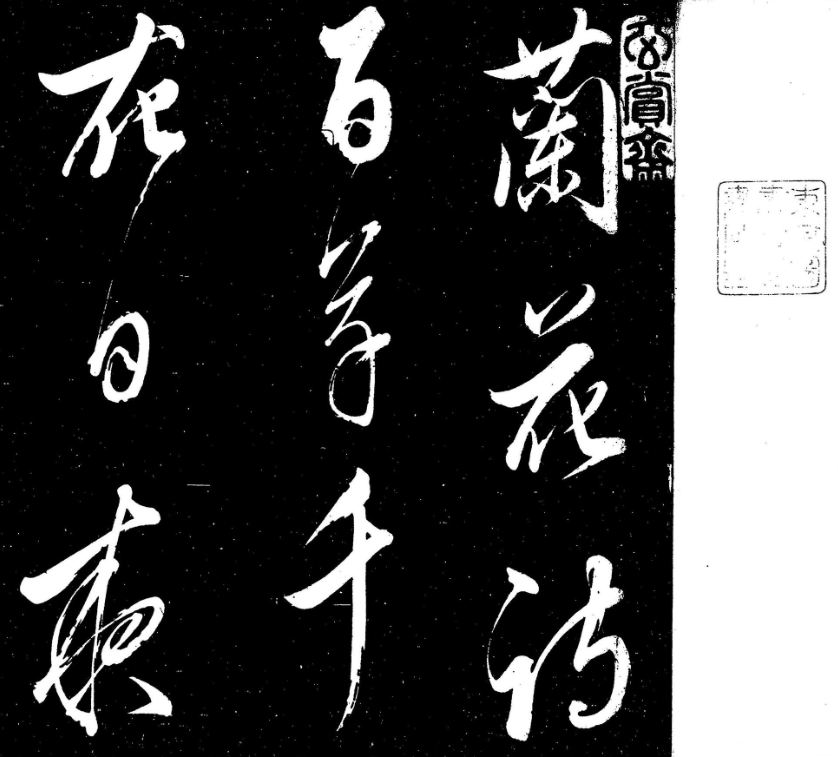 玄賞齋
蘭花詩
百草千
花日夜